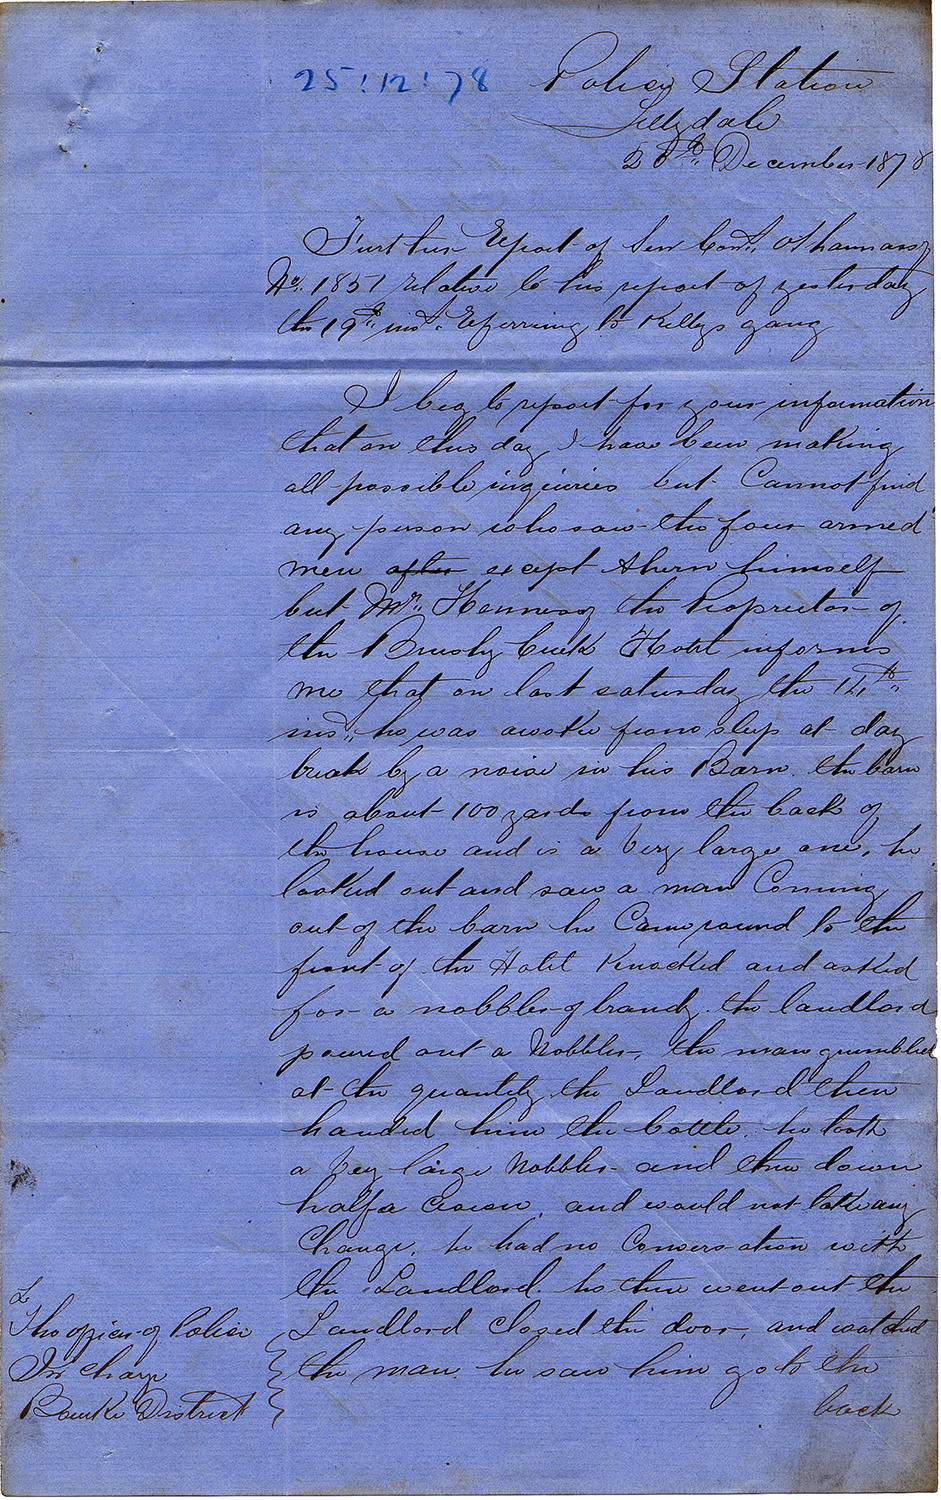 25:12:78 Police Station
Lillydale
20th December 1878
Further Report of Sen Const. O'Shannassy
No. 1857 relative to his report of yesterday
the 19th inst. Referring to Kellys gang
I beg to report for your information
that on this day I have been making
all possible inquiries but Cannot find
any person who saw the four armed
men after except Ahern himself
but Mr. Hennessy the Proprietor of
the Brushy Creek Hotel informs
me that on last saturday the 14th
inst., he was awoke from sleep at day
break by a noise in his Barn. the barn
is about 100 yards from the back of
the house and is a Very large one, he
looked out and saw a man Coming
out of the barn he Came round to the
front of the Hotel Knocked and asked
for a nobbler of brandy. the landlord
poured out a Nobbler, the man grumbled
at the quantity the Landlord then
handed him the bottle. he took
a Very large Nobbler and threw down
half a Crown, and would not take any
Change. he had no Conversation with
the Landlord. he then went out the
Landlord Closed the door, and watched
the man. he saw him go to the
back
To
The officer of Police
In Charge
Bourke District